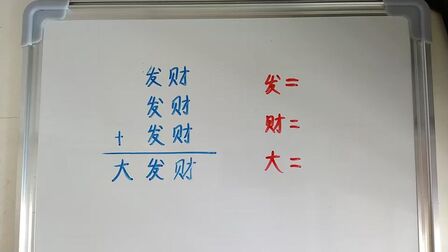 发财
发财
+ 发财
大发财
发=
财=
大=